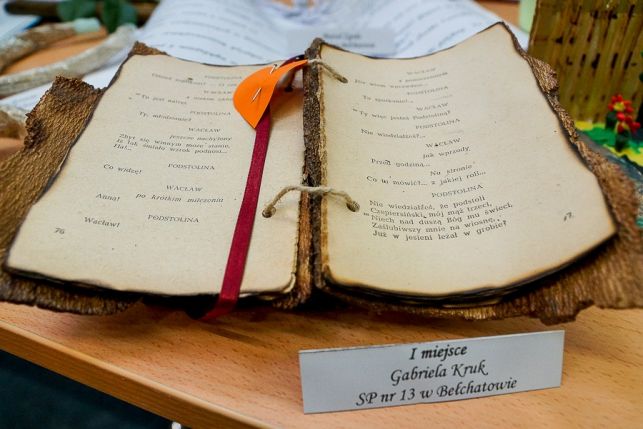 PODSTOLINA
Ty jest
Ty, młodzieniec!
WACŁAW
jeszcze nachylony
Zbyt się winnym może stanie,
Iż tak śmiało wzrok podnosi...
Ha!...
PODSTOLINA
Co widzę!
WACŁAW
Anna! po krótkim milczeniu
PODSTOLINA
Wacławi!
76
WACŁAW
PODSTOLINA
To
WACŁAW
Ty więc jesteś Podstoliną?
PODSTOLINA
Nie wiedziałżeś?
WACŁAW
Jak wprzódy
Przed godziną...
Na stronie
Co tu mówić?... z jakiej roli...
PODSTOLINA
Nie wiedziałżeś, że podstoli
Czepiersiński, mój mąż trzeci,
Niech nad duszą Bóg mu świeci,
Zaślubiwszy mnie na wiosnę,
Już w jesieni leżał w grobie?
I miejsce
Gabriela Kruk
SP nr 13 w Bełchatowie